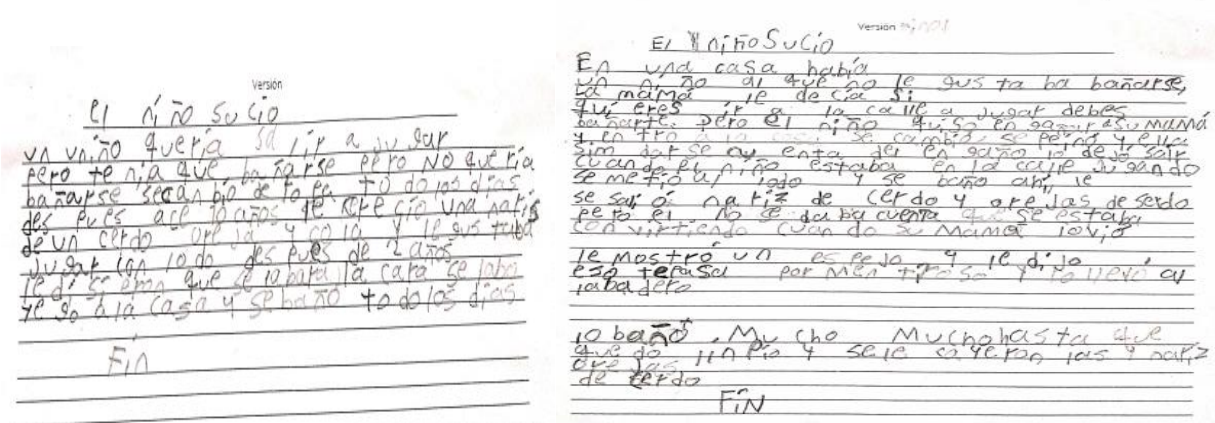 Versión
el niño sucio
un vniño quería salir a jugar
pero tenia que bañarse pero NO quería
bañarse secanbio de ropa todo los días
des pues ace 10 años le
de un cerdo oreja y cola y le gustaba
jugar con lodo des pues de 2 años
que se labara la cara se labo
a la casa y se baño todo los días
Fin
Versión
El niño Sucio
En una casa había
un niño al que no le gus ta ba bañarse,
la mamá le decía si
quieres ir a la calle a jugar debes
bañarte. Pero el niño quiso en gañar a su MaMá
y en tró a la casa, se canbió, se peinó y ella
sim darse cu enta del en gaño lo dejó salir
cuando el niño estaba en la calle jugando
se metió al lodo y se baño ahí, le
se salió nariz de cerdo y orejas de serdo
pero el no se daba cuenta que se estaba
con virtiendo cuan do su mamá lo vió
le mostró un es pejo y le dijo
eso te pasa por men tiroso y lo llevó al
labadero
lo baño Mucho Mucho hasta que
que do linpio y sele cayeron las y nariz
orejas
de cerdo
FiN